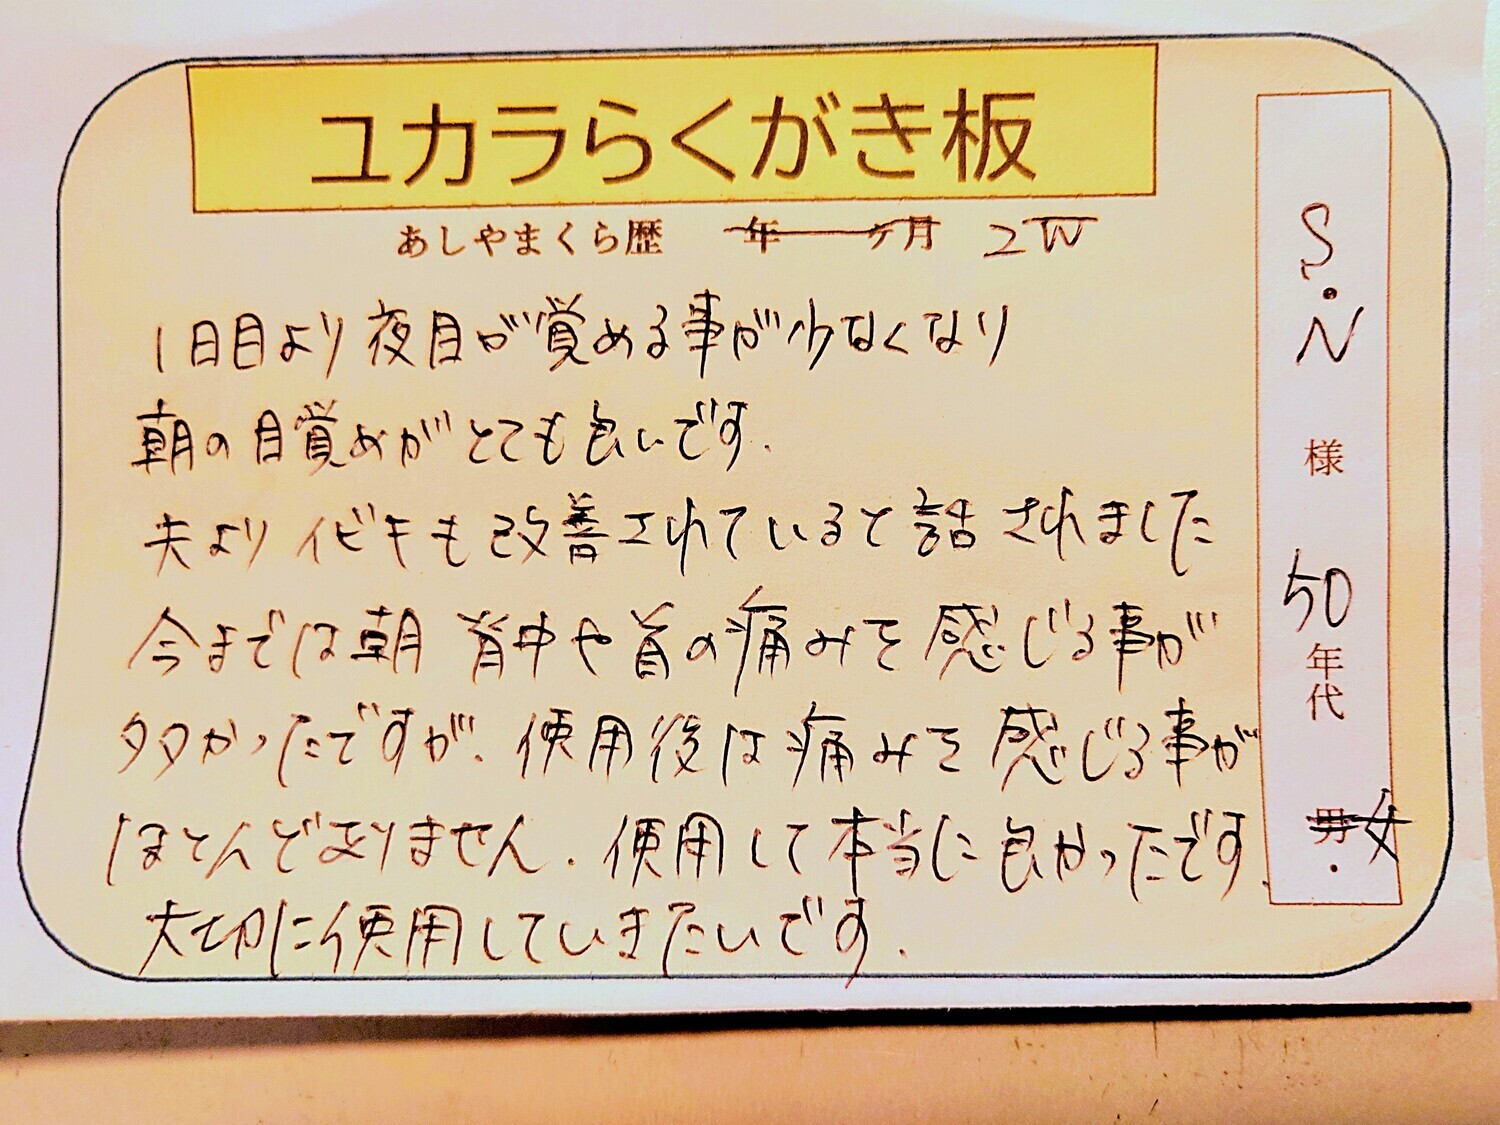 ユカラらくがき板
あしやまくら歴 年 ヶ月 2W
1日目より夜目が覚める事が少なくなり
朝の目覚めがとても良いです.
夫よりイビキも改善されていると話されました
今までは朝 背中や首の痛みを感じる事が
多かったですが、使用後は痛みを感じる事が
ほとんどありません. 使用して本当に良かったです.
大切に使用していきたいです.
S・N 様 50年代 男・女